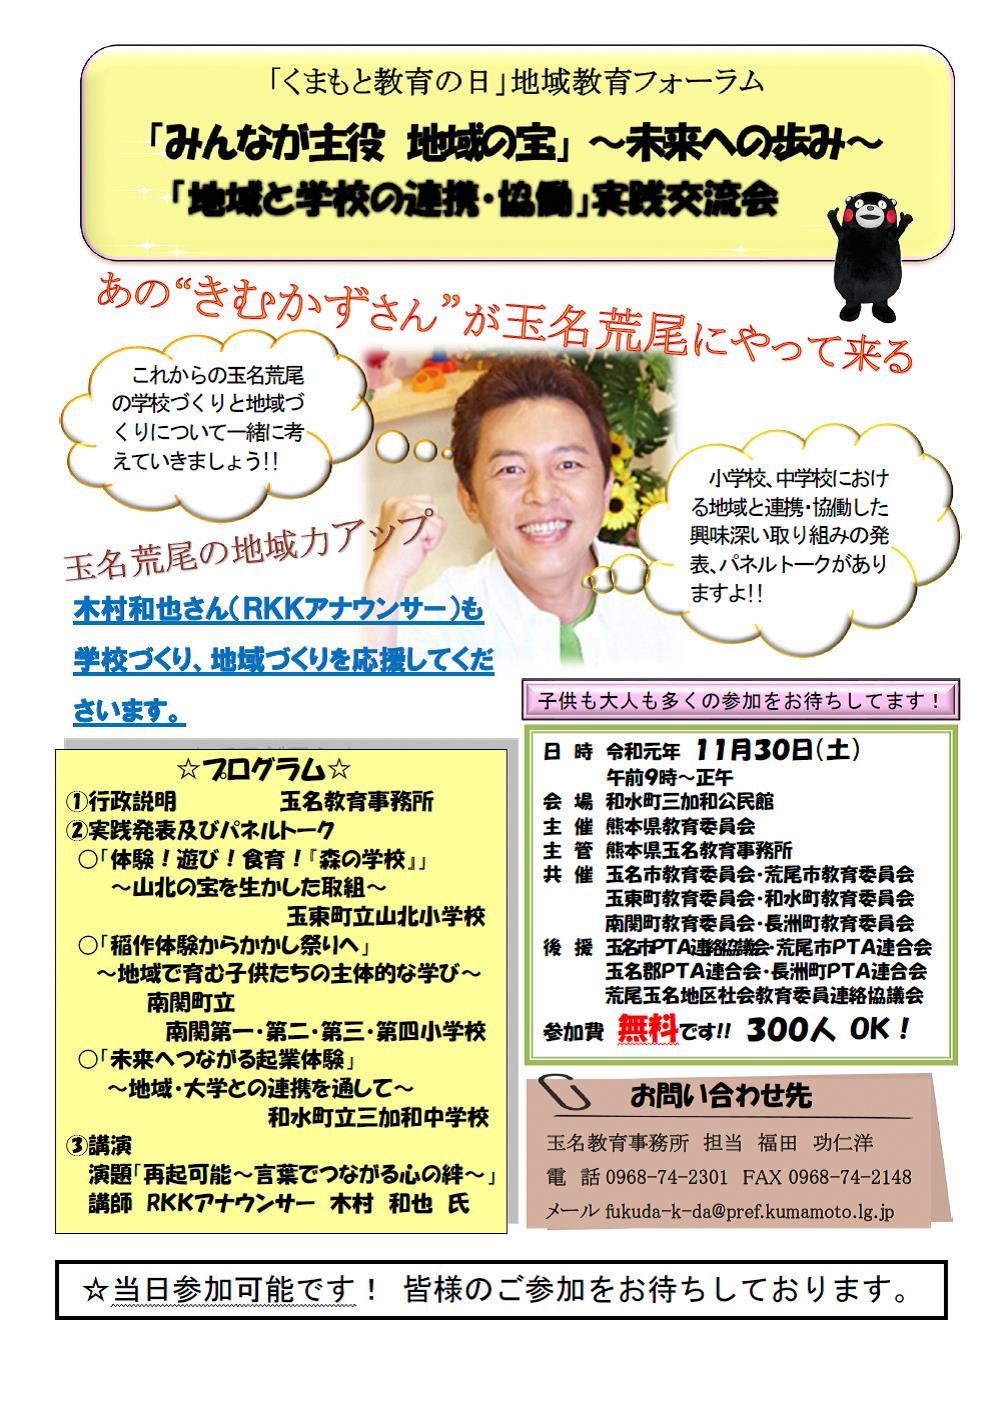 「くまもと教育の日」地域教育フォーラム
「みんなが主役　地域の宝」～未来への歩み～
「地域と学校の連携・協働」実践交流会
あの“きむかずさん”が玉名荒尾にやって来る
これからの玉名荒尾
の学校づくりと地域づ
くりについて一緒に考
えていきましょう！！
小学校、中学校におけ
る地域と連携・協働した
興味深い取り組みの発
表、パネルトークがあり
ますよ！！
玉名荒尾の地域力アップ
木村和也さん（ＲＫＫアナウンサー）も
学校づくり、地域づくりを応援してくだ
さいます。
子供も大人も多くの参加をお待ちしてます！
☆プログラム☆
①行政説明　玉名教育事務所
②実践発表及びパネルトーク
○「体験！遊び！食育！『森の学校』」
～山北の宝を生かした取組～
玉東町立山北小学校
○「稲作体験からかかし祭りへ」
～地域で育む子供たちの主体的な学び～
南関町立
南関第一・第二・第三・第四小学校
○「未来へつながる起業体験」
～地域・大学との連携を通して～
和水町立三加和中学校
③講演
演題「再起可能～言葉でつながる心の絆～」
講師　ＲＫＫアナウンサー　木村　和也　氏
日　時　令和元年　１１月３０日（土）
午前９時～正午
会　場　和水町三加和公民館
主　催　熊本県教育委員会
主　管　熊本県玉名教育事務所
共　催　玉名市教育委員会・荒尾市教育委員会
玉東町教育委員会・和水町教育委員会
南関町教育委員会・長洲町教育委員会
後　援　玉名市ＰＴＡ連絡協議会・荒尾市ＰＴＡ連合会
玉名郡ＰＴＡ連合会・長洲町ＰＴＡ連合会
荒尾玉名地区社会教育委員連絡協議会
参加費　無料です!!　３００人　ＯＫ！
お問い合わせ先
玉名教育事務所　担当　福田　功仁洋
電　話 0968-74-2301　FAX 0968-74-2148
メール fukuda-k-da@pref.kumamoto.lg.jp
☆当日参加可能です！　皆様のご参加をお待ちしております。